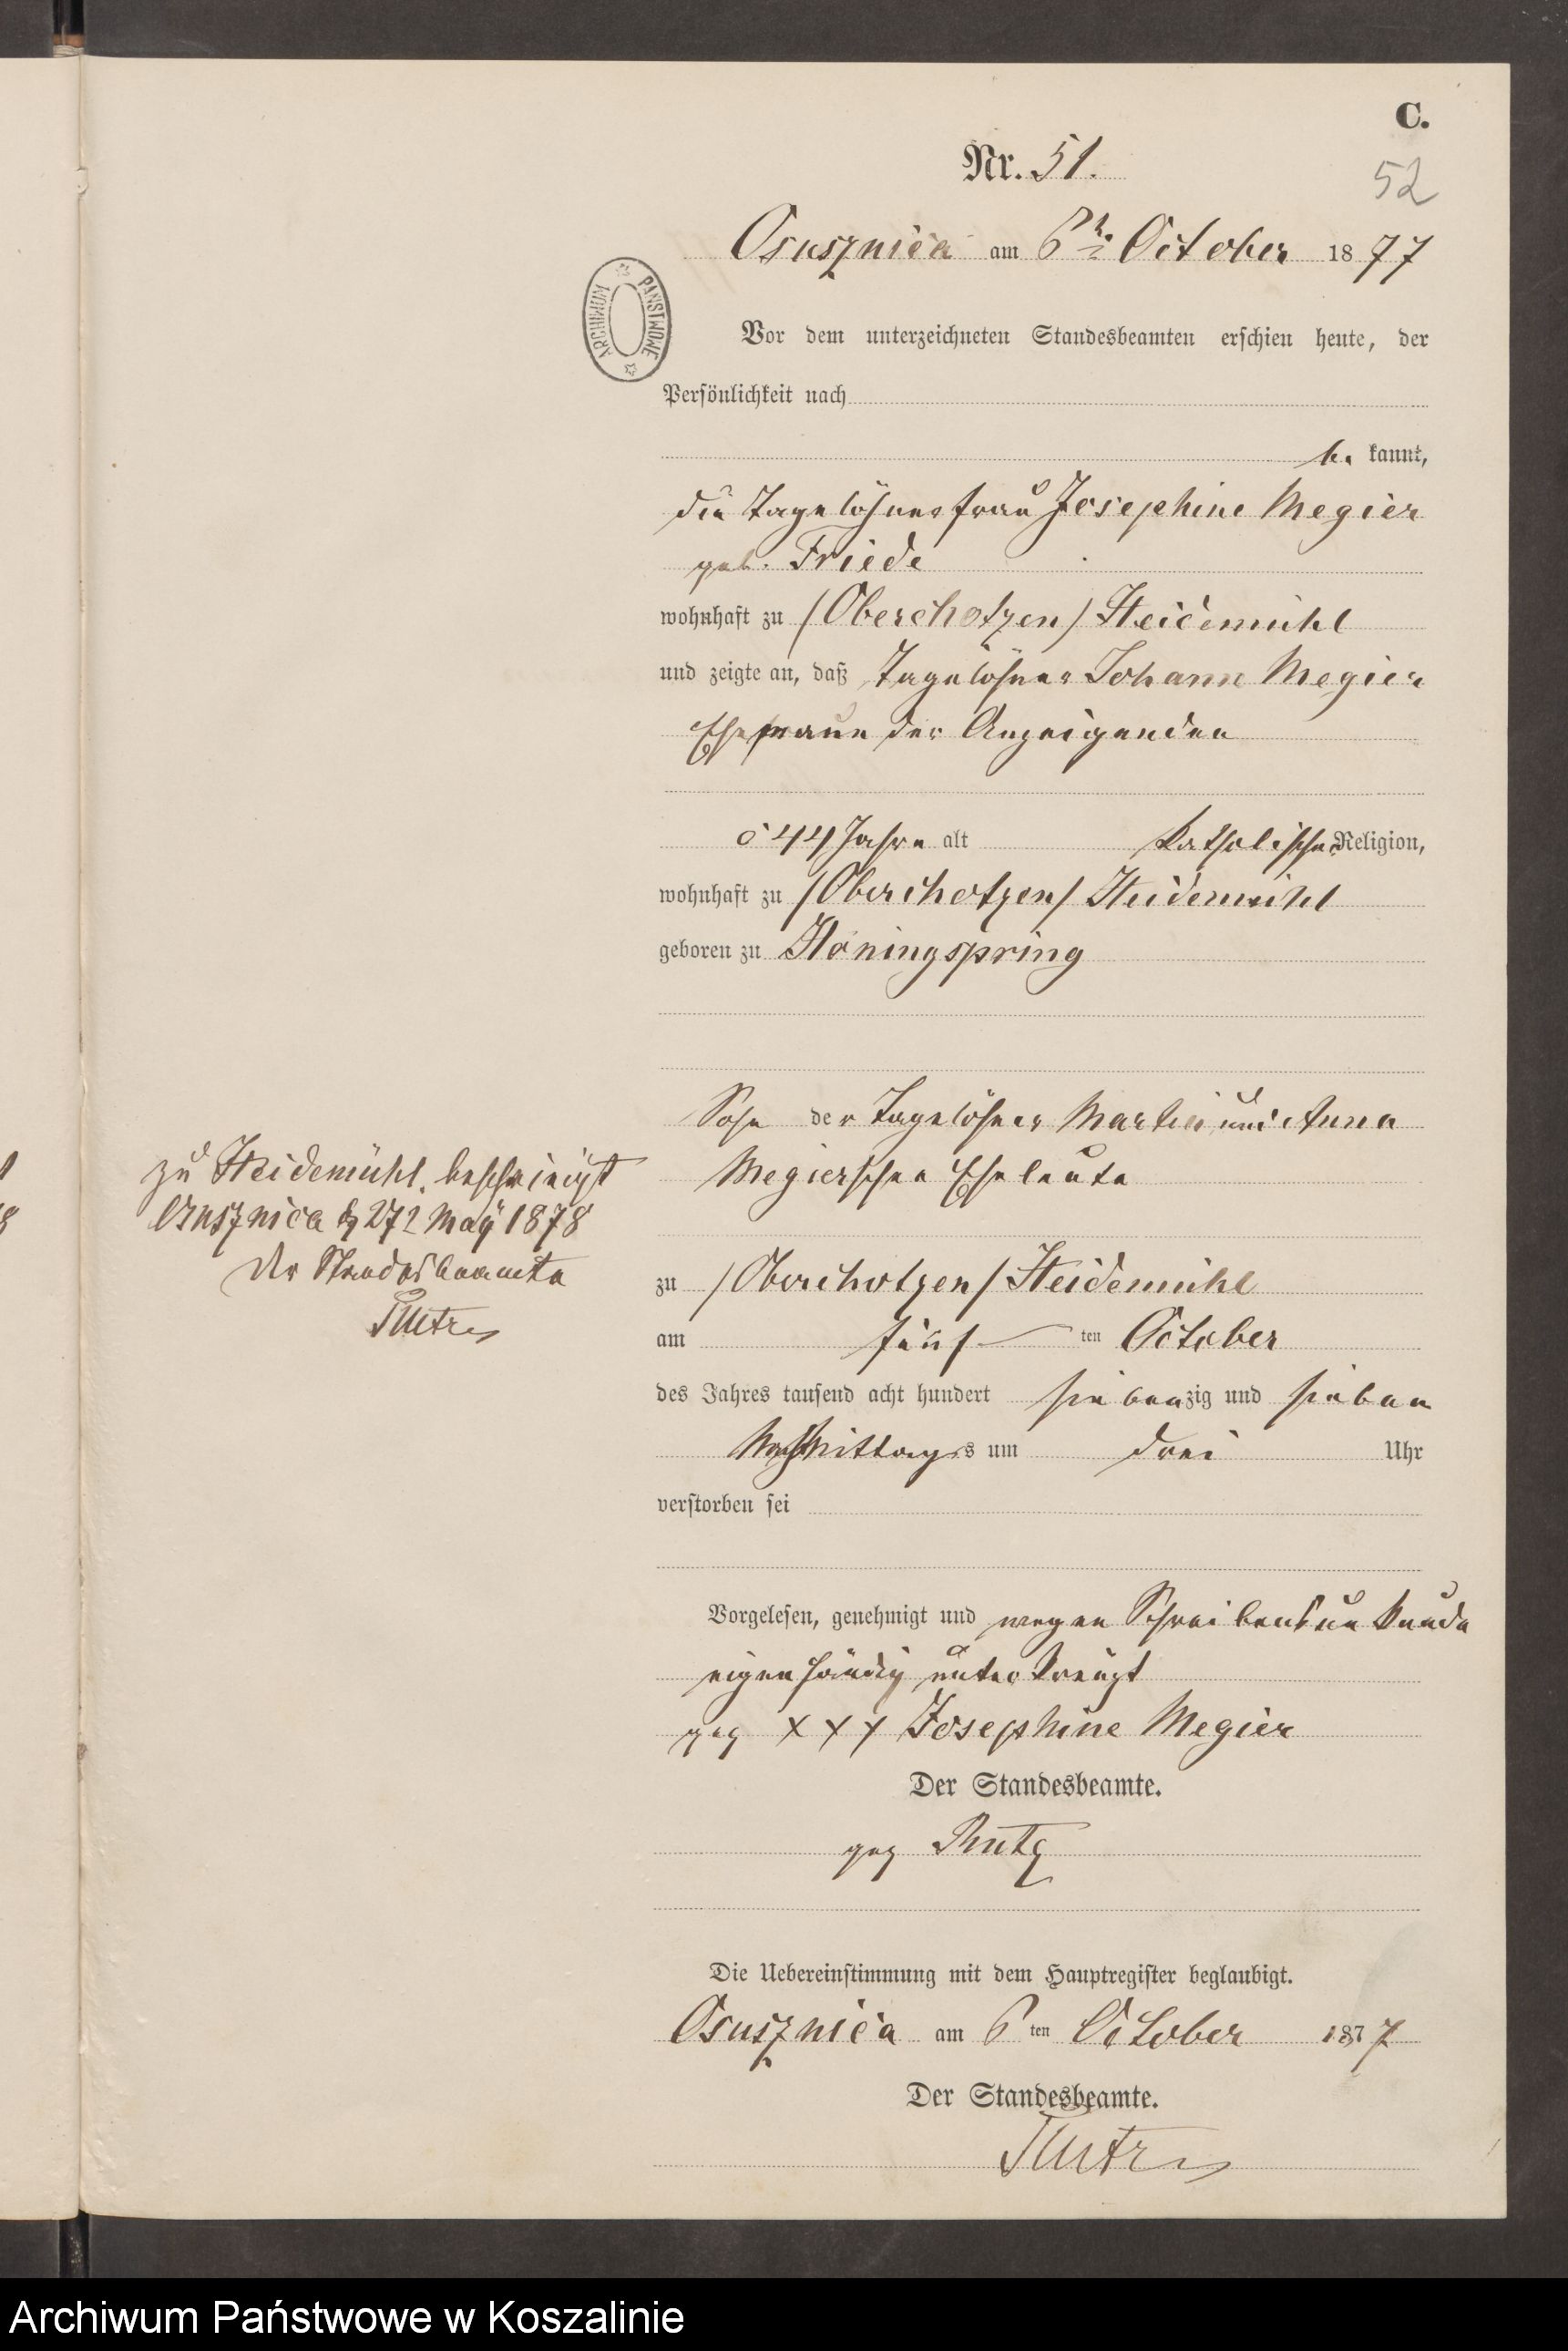 C.
Nr. 51.
52
Osusznica am 6ten October 1877
ARCHIWUM PAŃSTWOWE
Vor dem unterzeichneten Standesbeamten erschien heute, der
Persönlichkeit nach
be kannt,
die Tagelöhnerfrau Josephine Megier
geb. Friede
wohnhaft zu (Oberchotzen) Heidemühl
und zeigte an, daß Tagelöhner Johann Megier
Ehemann der Anzeigenden
44 Jahre alt katholischer Religion,
wohnhaft zu (Oberchotzen) Heidemühl
geboren zu Höningspring
Sohn der Tagelöhner Martin und Anna
Megierschen Eheleute
zu Heidemühl bescheinigt
Osusznica 27 May 1878
Der Standesbeamte
zu (Oberchotzen) Heidemühl
am fünf ten October
des Jahres tausend acht hundert siebenzig und sieben
Nachmittags um drei Uhr
verstorben sei
Vorgelesen, genehmigt und wegen Schreibensunkunde
eigenhändig unterkreuzt
gez XXX Josephine Megier
Der Standesbeamte.
gez
Die Uebereinstimmung mit dem Hauptregister beglaubigt.
Osusznica am 6ten October 1877
Der Standesbeamte.
Archiwum Państwowe w Koszalinie